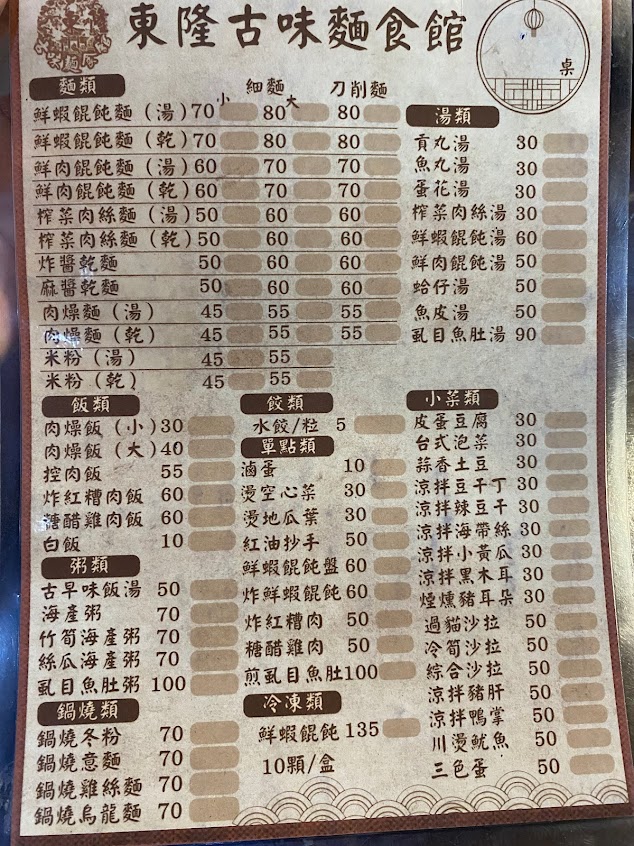 東隆古味麵食館
桌
麵類
小 細麵 大 刀削麵
鮮蝦餛飩麵（湯）70 80 80
鮮蝦餛飩麵（乾）70 80 80
鮮肉餛飩麵（湯）60 70 70
鮮肉餛飩麵（乾）60 70 70
榨菜肉絲麵（湯）50 60 60
榨菜肉絲麵（乾）50 60 60
炸醬乾麵 50 60 60
麻醬乾麵 50 60 60
肉燥麵（湯） 45 55 55
肉燥麵（乾） 45 55 55
米粉（湯） 45 55
米粉（乾） 45 55
湯類
貢丸湯 30
魚丸湯 30
蛋花湯 30
榨菜肉絲湯 30
鮮蝦餛飩湯 60
鮮肉餛飩湯 50
蛤仔湯 50
魚皮湯 50
虱目魚肚湯 90
飯類
肉燥飯（小）30
肉燥飯（大）40
控肉飯 55
炸紅糟肉飯 60
糖醋雞肉飯 60
白飯 10
粥類
古早味飯湯 50
海產粥 70
竹筍海產粥 70
絲瓜海產粥 70
虱目魚肚粥 100
鍋燒類
鍋燒冬粉 70
鍋燒意麵 70
鍋燒雞絲麵 70
鍋燒烏龍麵 70
餃類
水餃/粒 5
單點類
滷蛋 10
燙空心菜 30
燙地瓜葉 30
紅油抄手 50
鮮蝦餛飩盤 60
炸鮮蝦餛飩 60
炸紅糟肉 50
糖醋雞肉 50
煎虱目魚肚 100
冷凍類
鮮蝦餛飩 135
10顆/盒
小菜類
皮蛋豆腐 30
台式泡菜 30
蒜香土豆 30
涼拌豆干丁 30
涼拌辣豆干 30
涼拌海帶絲 30
涼拌小黃瓜 30
涼拌黑木耳 30
煙燻豬耳朵 30
過貓沙拉 50
冷筍沙拉 50
綜合沙拉 50
涼拌豬肝 50
涼拌鴨掌 50
川燙魷魚 50
三色蛋 50